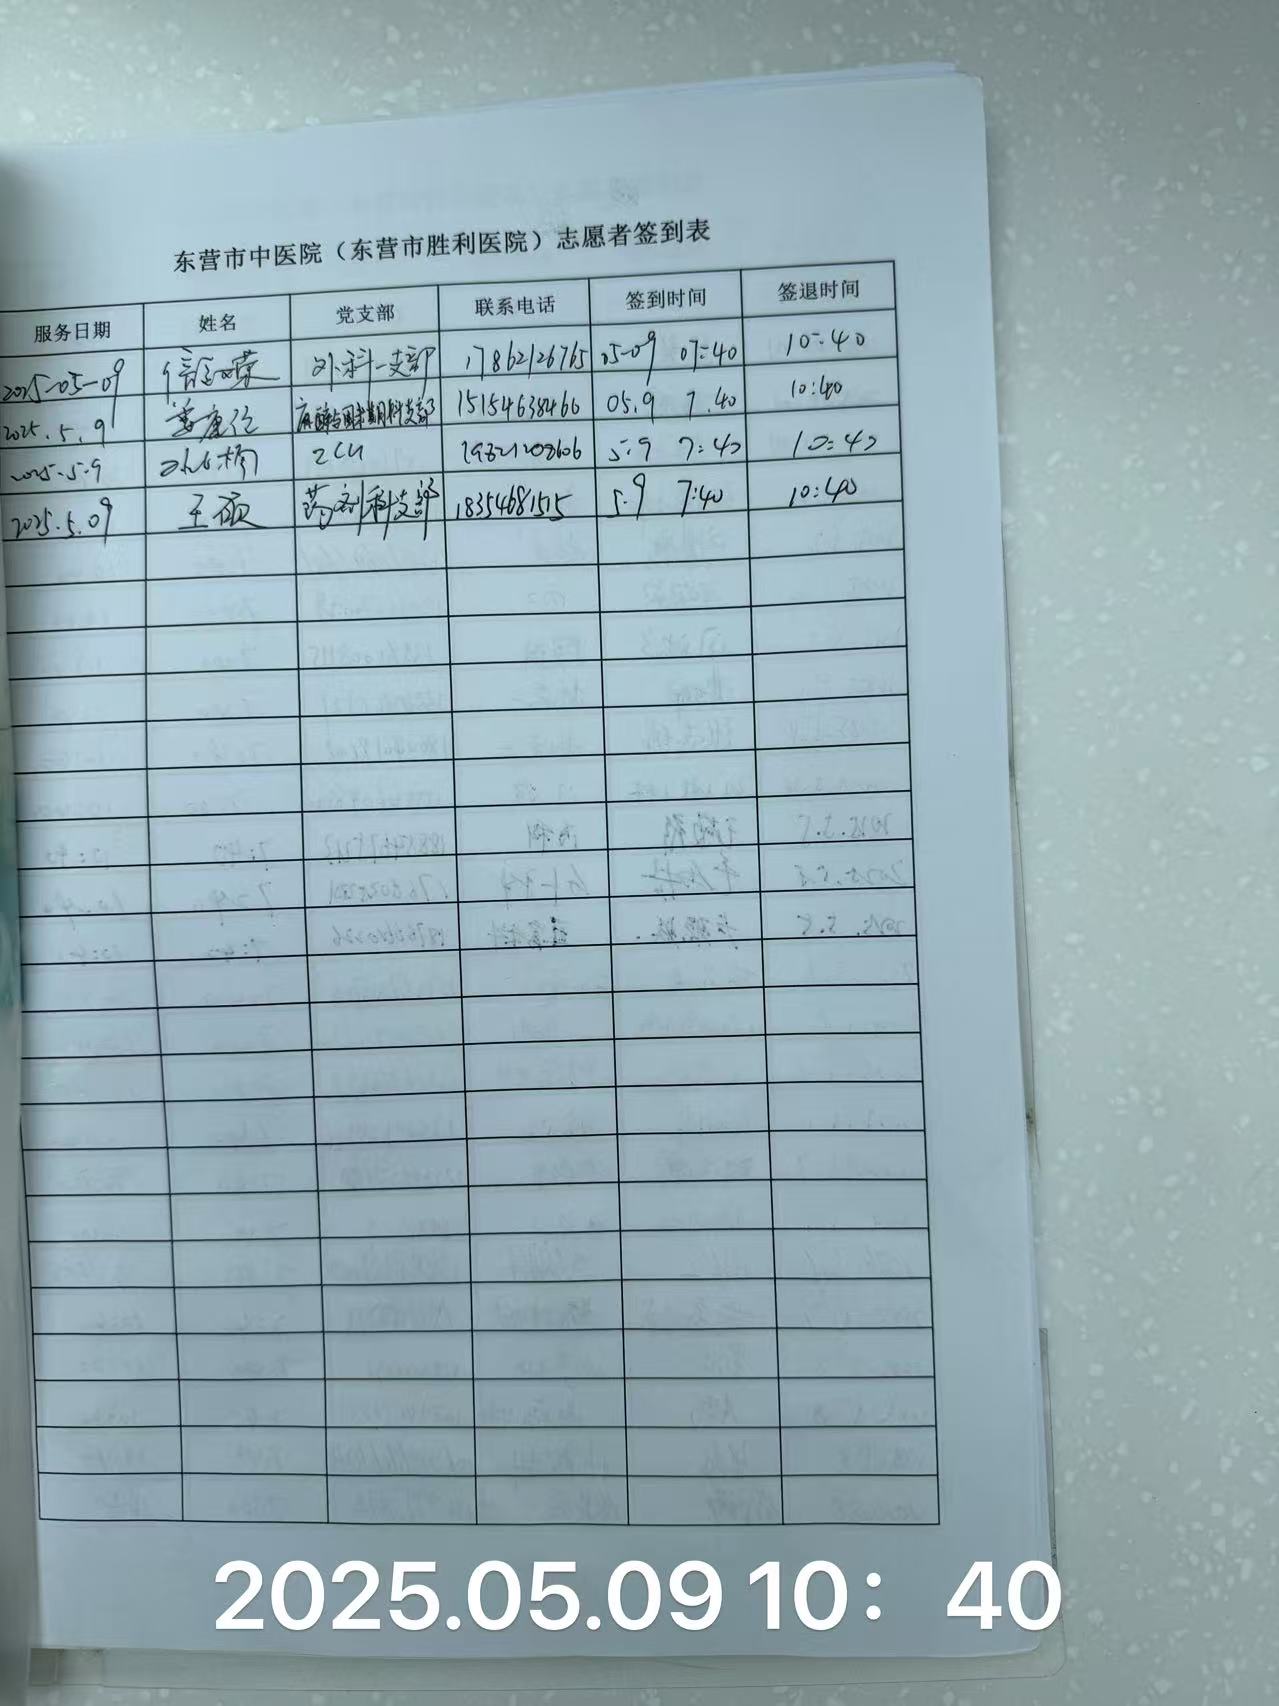 东营市中医院（东营市胜利医院）志愿者签到表
服务日期 姓名 党支部 联系电话 签到时间 签退时间
2025-05-09 外科一支部 17862126765 05-09 07:40 10:40
2025.5.9 姜康 麻醉与围术期科支部 15154638466 05.9 7.40 10:40
2025.5.9 ICU 5.9 7:40 10:40
2025.5.09 王硕 药剂科支部 18354681515 5.9 7:40 10:40
2025.05.09 10：40